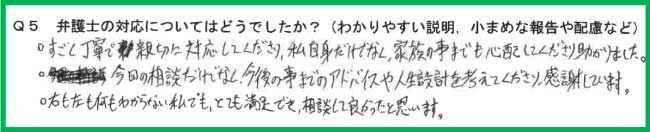 Q5 弁護士の対応についてはどうでしたか？（わかりやすい説明，小まめな報告や配慮など）
○すごく丁寧で親切に対応してくださり、私自身だけでなく、家族の事までも心配してくださり助かりました。
○今日の相談だけでなく、今後の事までのアドバイスや人生設計を考えてくださり、感謝しています。
○右も左も何もわからない私でも、とても満足でき、相談して良かったと思います。